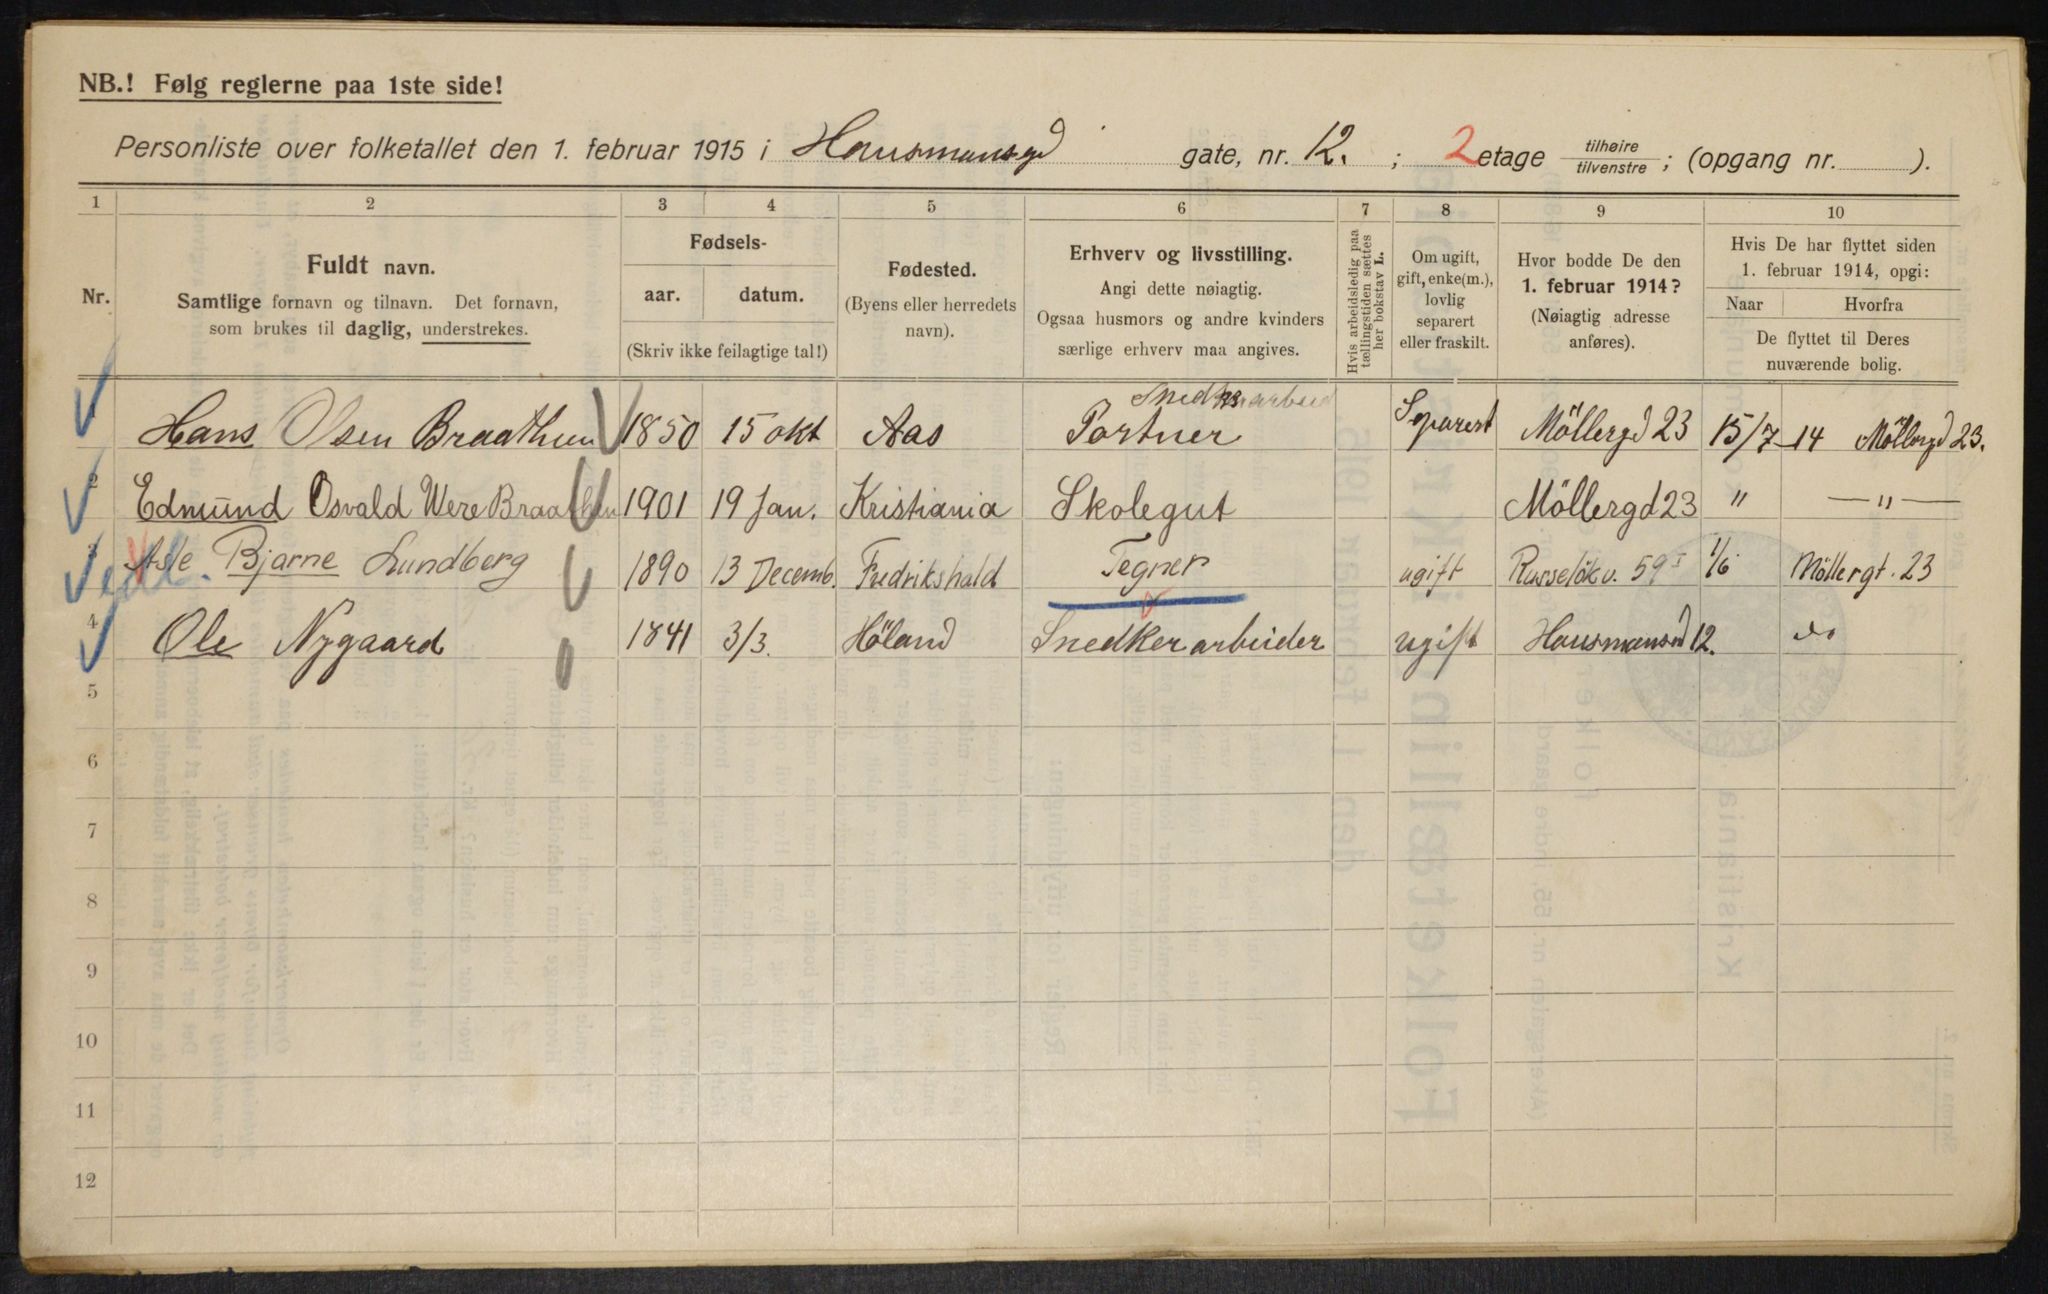 NB.! Følg reglerne paa 1ste side!
Personliste over folketallet den 1. februar 1915 i Hausmansgd gate, nr. 12. ; 2 etage tilhøire tilvenstre ; (opgang nr. ).
1 2 3 4 5 6 7 8 9 10
Nr.
Fuldt navn.
Samtlige fornavn og tilnavn. Det fornavn,
som brukes til daglig, understrekes.
Fødsels-
aar. datum.
(Skriv ikke feilagtige tal!)
Fødested.
(Byens eller herredets
navn).
Erhverv og livsstilling.
Angi dette nøiagtig.
Ogsaa husmors og andre kvinders
særlige erhverv maa angives.
Hvis arbeidsledig paa
tællingstiden sættes
her bokstav L.
Om ugift,
gift, enke(m.),
lovlig
separert
eller fraskilt.
Hvor bodde De den
1. februar 1914?
(Nøiagtig adresse
anføres).
Hvis De har flyttet siden
1. februar 1914, opgi:
Naar Hvorfra
De flyttet til Deres
nuværende bolig.
1 Hans Olsen Braathen 1850 15 okt Aas Portner Separert Möllergd 23 15/7 14 Möllergd 23.
2 Edmund Osvald Were Braathen 1901 19 Jan. Kristiania Skolegut Möllergd 23 " — " —
3 Bjarne Lundberg 1890 13 Decemb. Fredrikshald Tegner ugift Russeløkv. 59 I 1/6 Möllergt. 23
4 Ole Nygaard 1841 3/3. Höland Snedkerarbeider ugift Hausmansgd 12. do
5
6
7
8
9
10
11
12